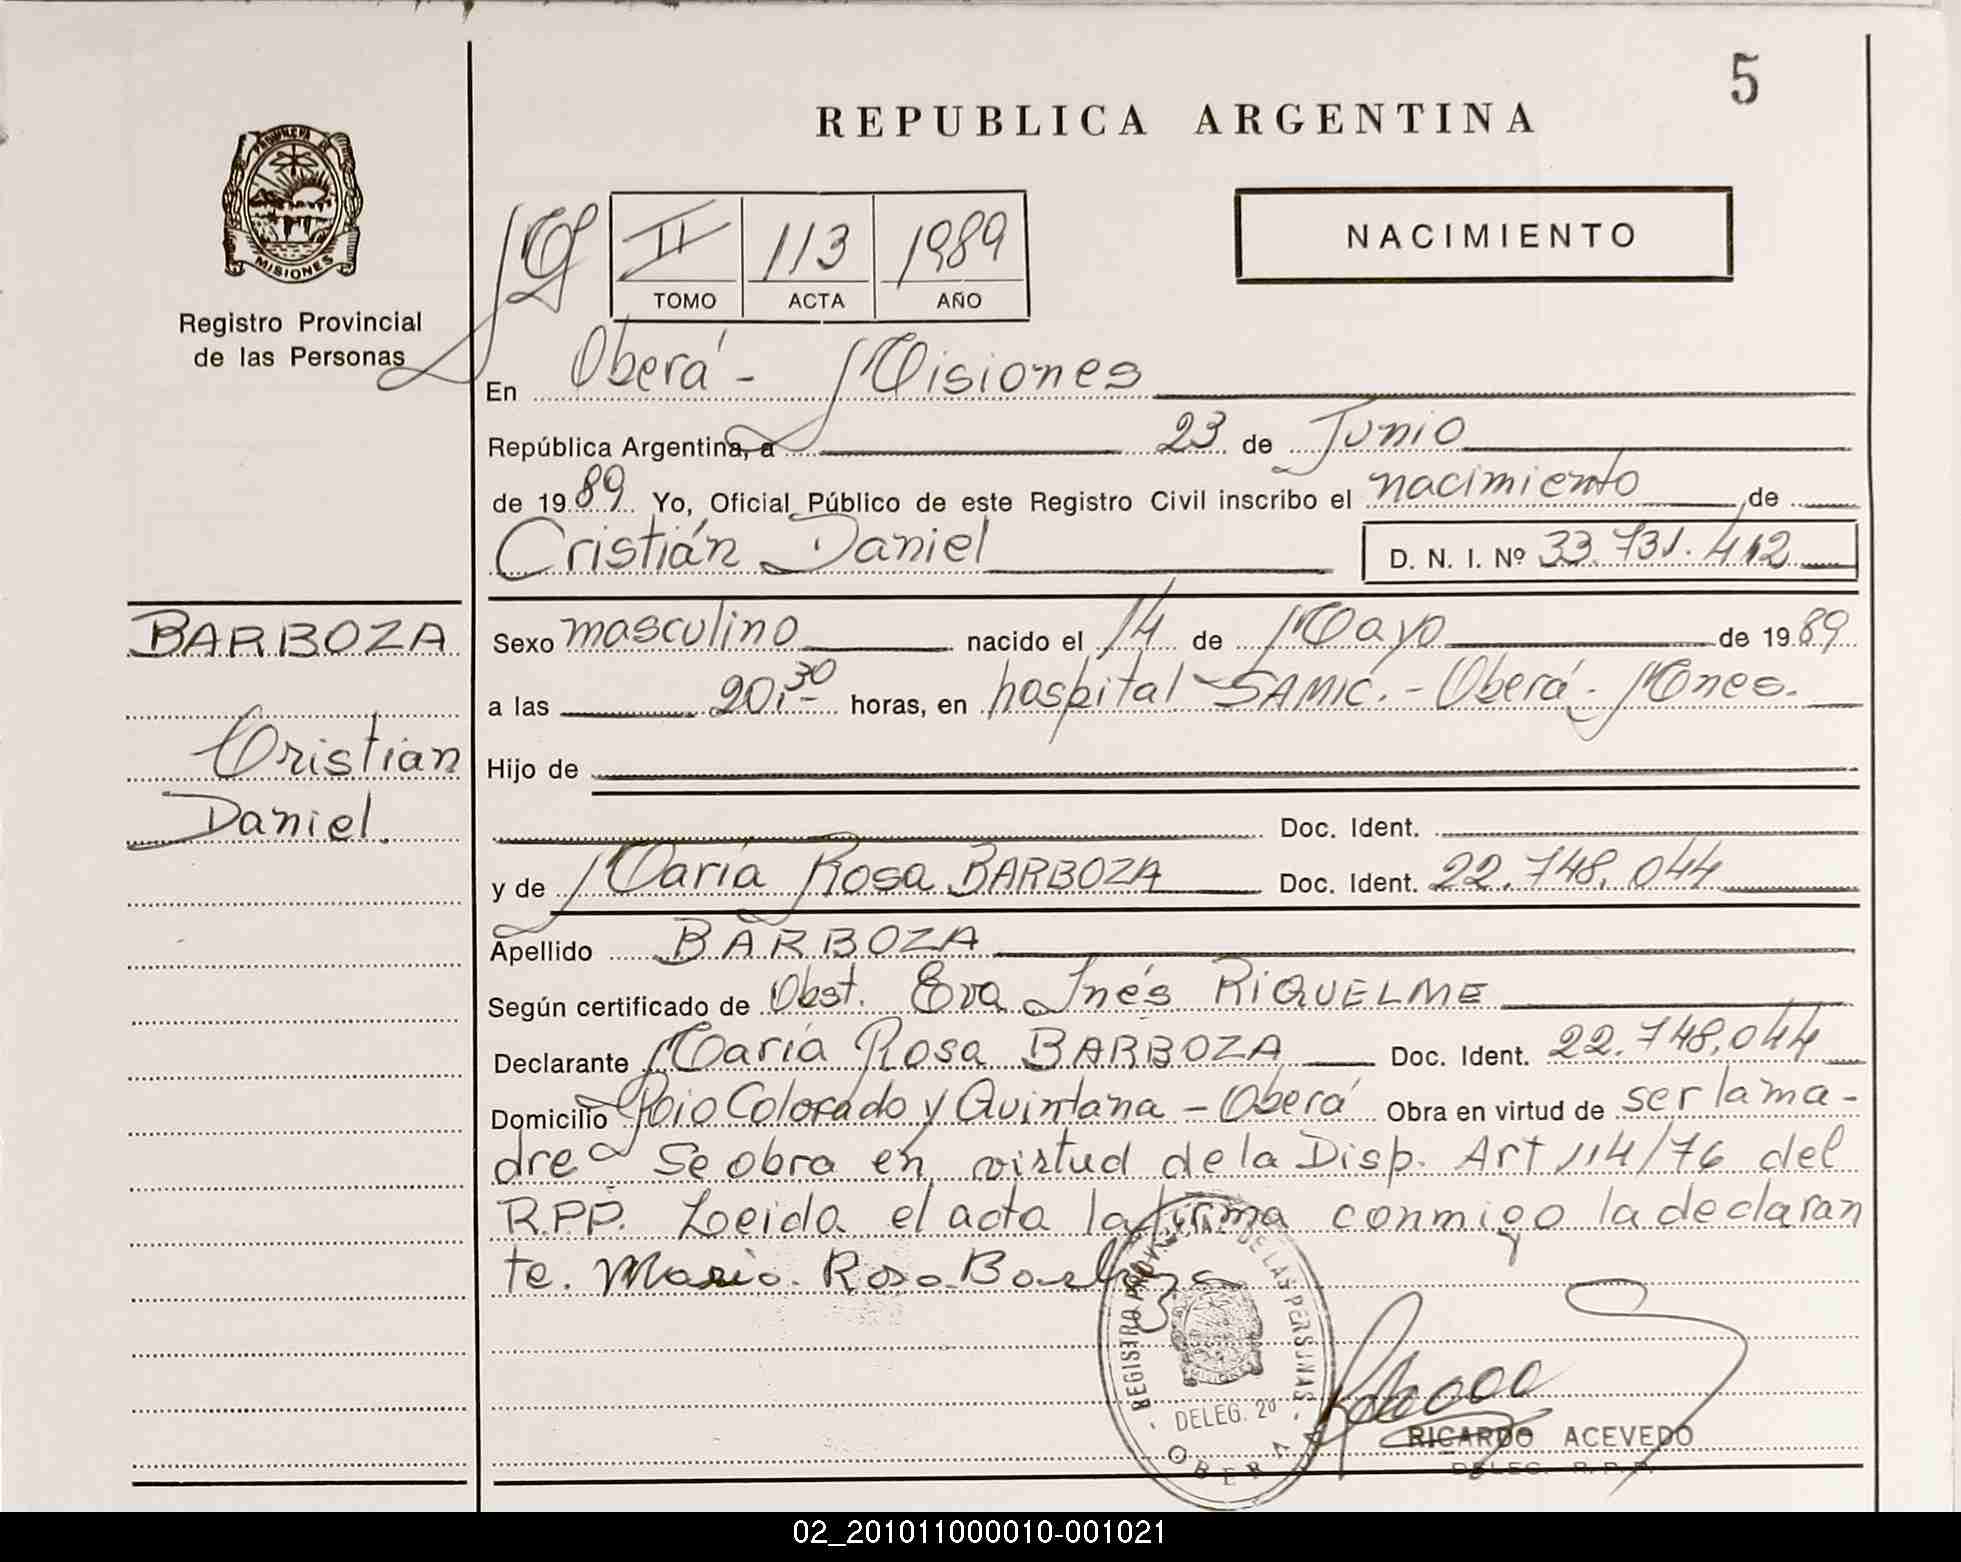 5
REPUBLICA ARGENTINA
PROVINCIA DE
MISIONES
Registro Provincial
de las Personas
NACIMIENTO
II 113 1989
TOMO ACTA AÑO
En Oberá - Misiones
República Argentina, a 23 de Junio
de 1989 Yo, Oficial Público de este Registro Civil inscribo el nacimiento de
Cristián Daniel D. N. I. Nº 33.731.412
BARBOZA
Cristian
Daniel
Sexo masculino nacido el 14 de Mayo de 1989
a las 20,30 horas, en hospital SAMIC. - Oberá - Mnes.
Hijo de
Doc. Ident.
y de María Rosa BARBOZA Doc. Ident. 22.748.044
Apellido BARBOZA
Según certificado de Obst. Eva Inés RIQUELME
Declarante María Rosa BARBOZA Doc. Ident. 22.748.044
Domicilio Poio Colorado y Quintana - Oberá Obra en virtud de ser la ma-
dre Se obra en virtud de la Disp. Art 114/76 del
R.P.P. Leida el acta la firma conmigo la declaran
te. Maria Rosa Barboza
REGISTRO PROVINCIAL DE LAS PERSONAS
DELEG. 2ª
OBERA
RICARDO ACEVEDO
DELEG. R.P.P.
02_201011000010-001021